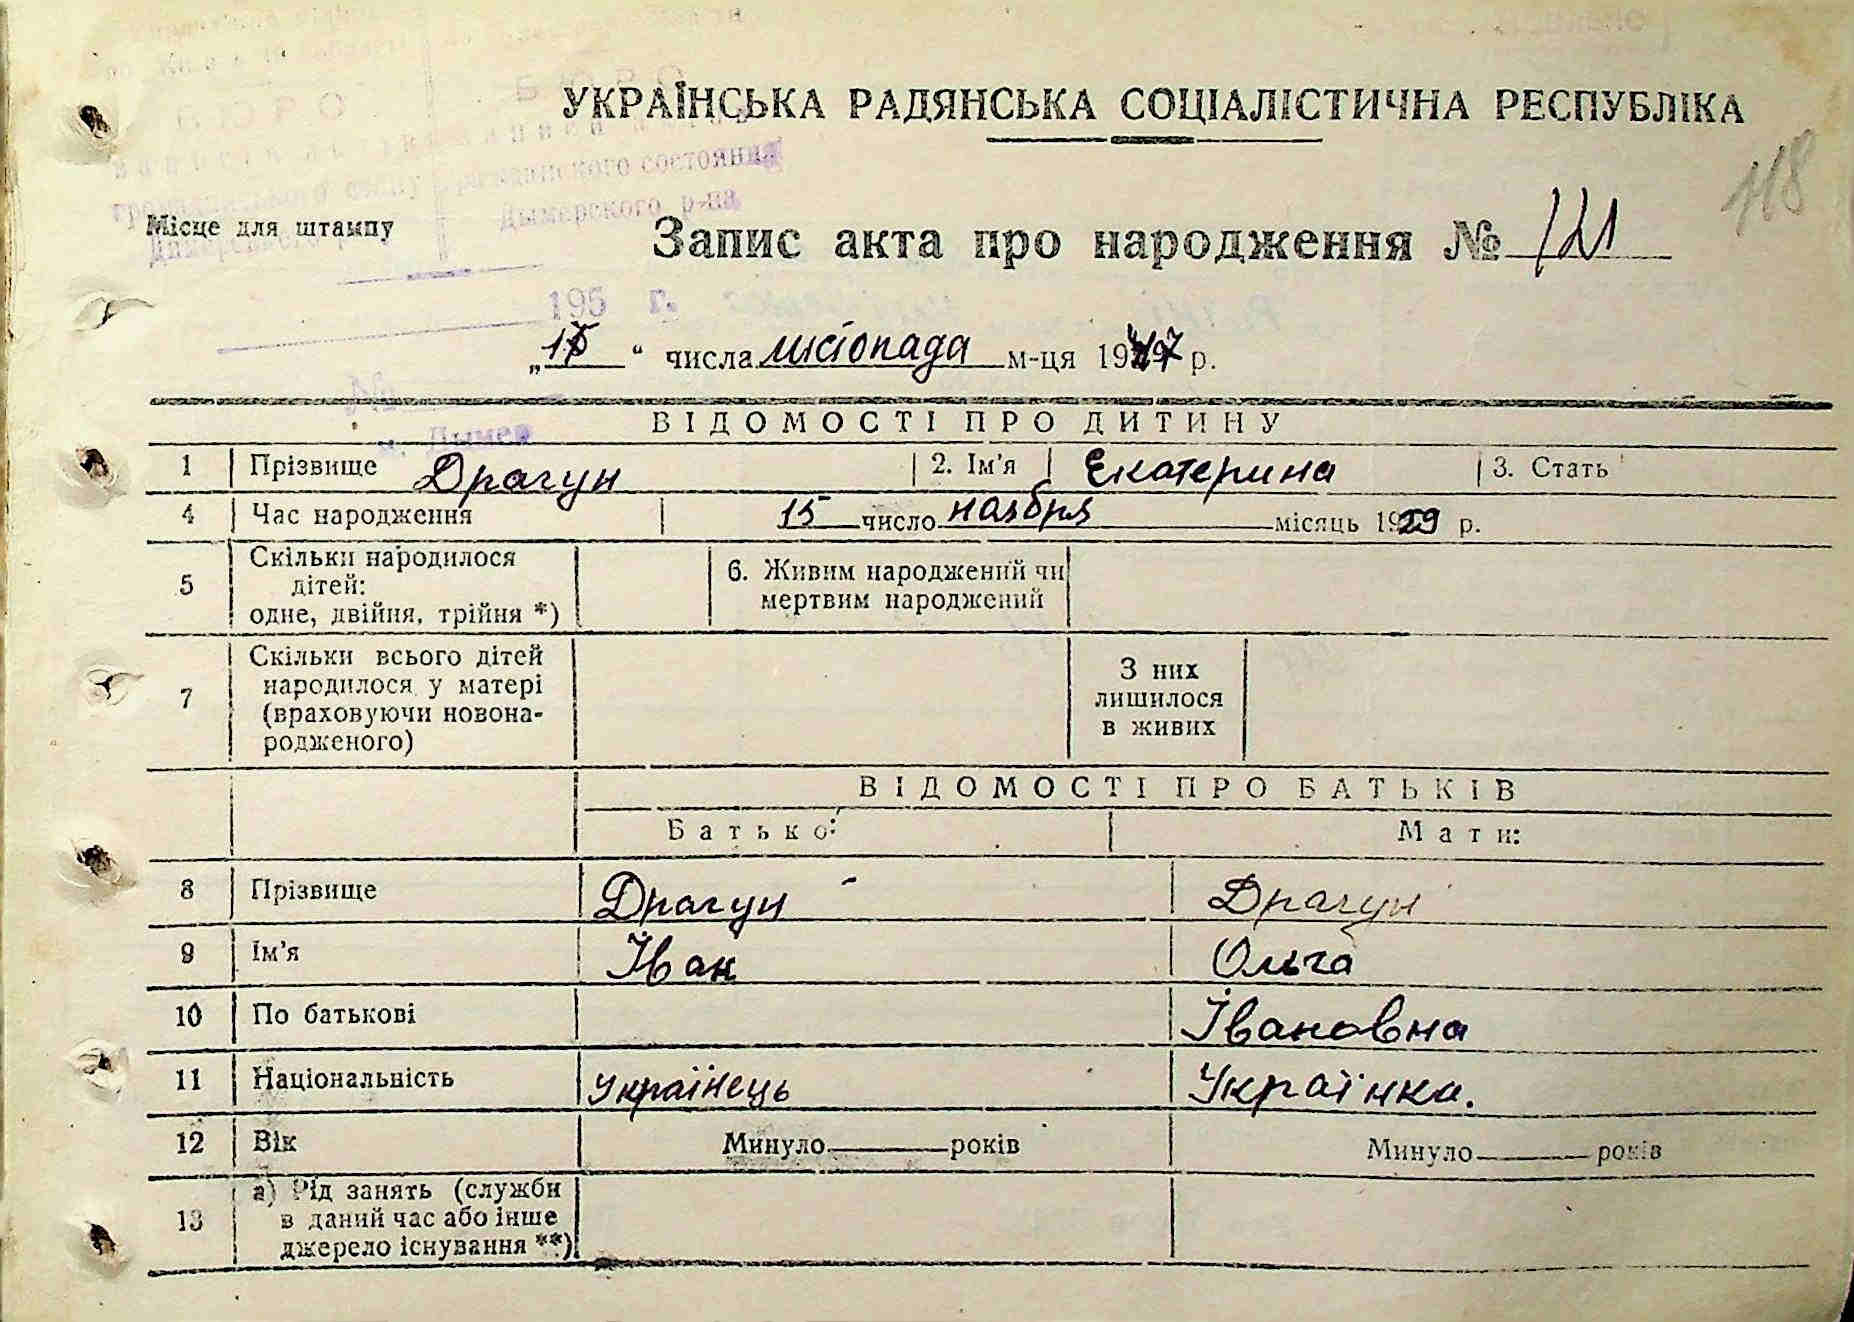 УКРАЇНСЬКА РАДЯНСЬКА СОЦІАЛІСТИЧНА РЕСПУБЛІКА
118
БЮРО БЮРО
гражданского состояния
Дымерского р-на
Місце для штампу
Запис акта про народження № 121
195 г.
„15“ числа листопада м-ця 1947 р.
№
м. Дымер
ВІДОМОСТІ ПРО ДИТИНУ
1 Прізвище Драгун 2. Ім'я Екатерина 3. Стать
4 Час народження 15 число ноября місяць 1929 р.
5 Скільки народилося дітей: одне, двійня, трійня *) 6. Живим народжений чи мертвим народжений
7 Скільки всього дітей народилося у матері (враховуючи новонародженого) З них лишилося в живих
ВІДОМОСТІ ПРО БАТЬКІВ
Батько: Мати:
8 Прізвище Драгун Драгун
9 Ім'я Іван Ольга
10 По батькові Івановна
11 Національність Українець Українка.
12 Вік Минуло років Минуло років
13 а) Рід занять (служби в даний час або інше джерело існування **)